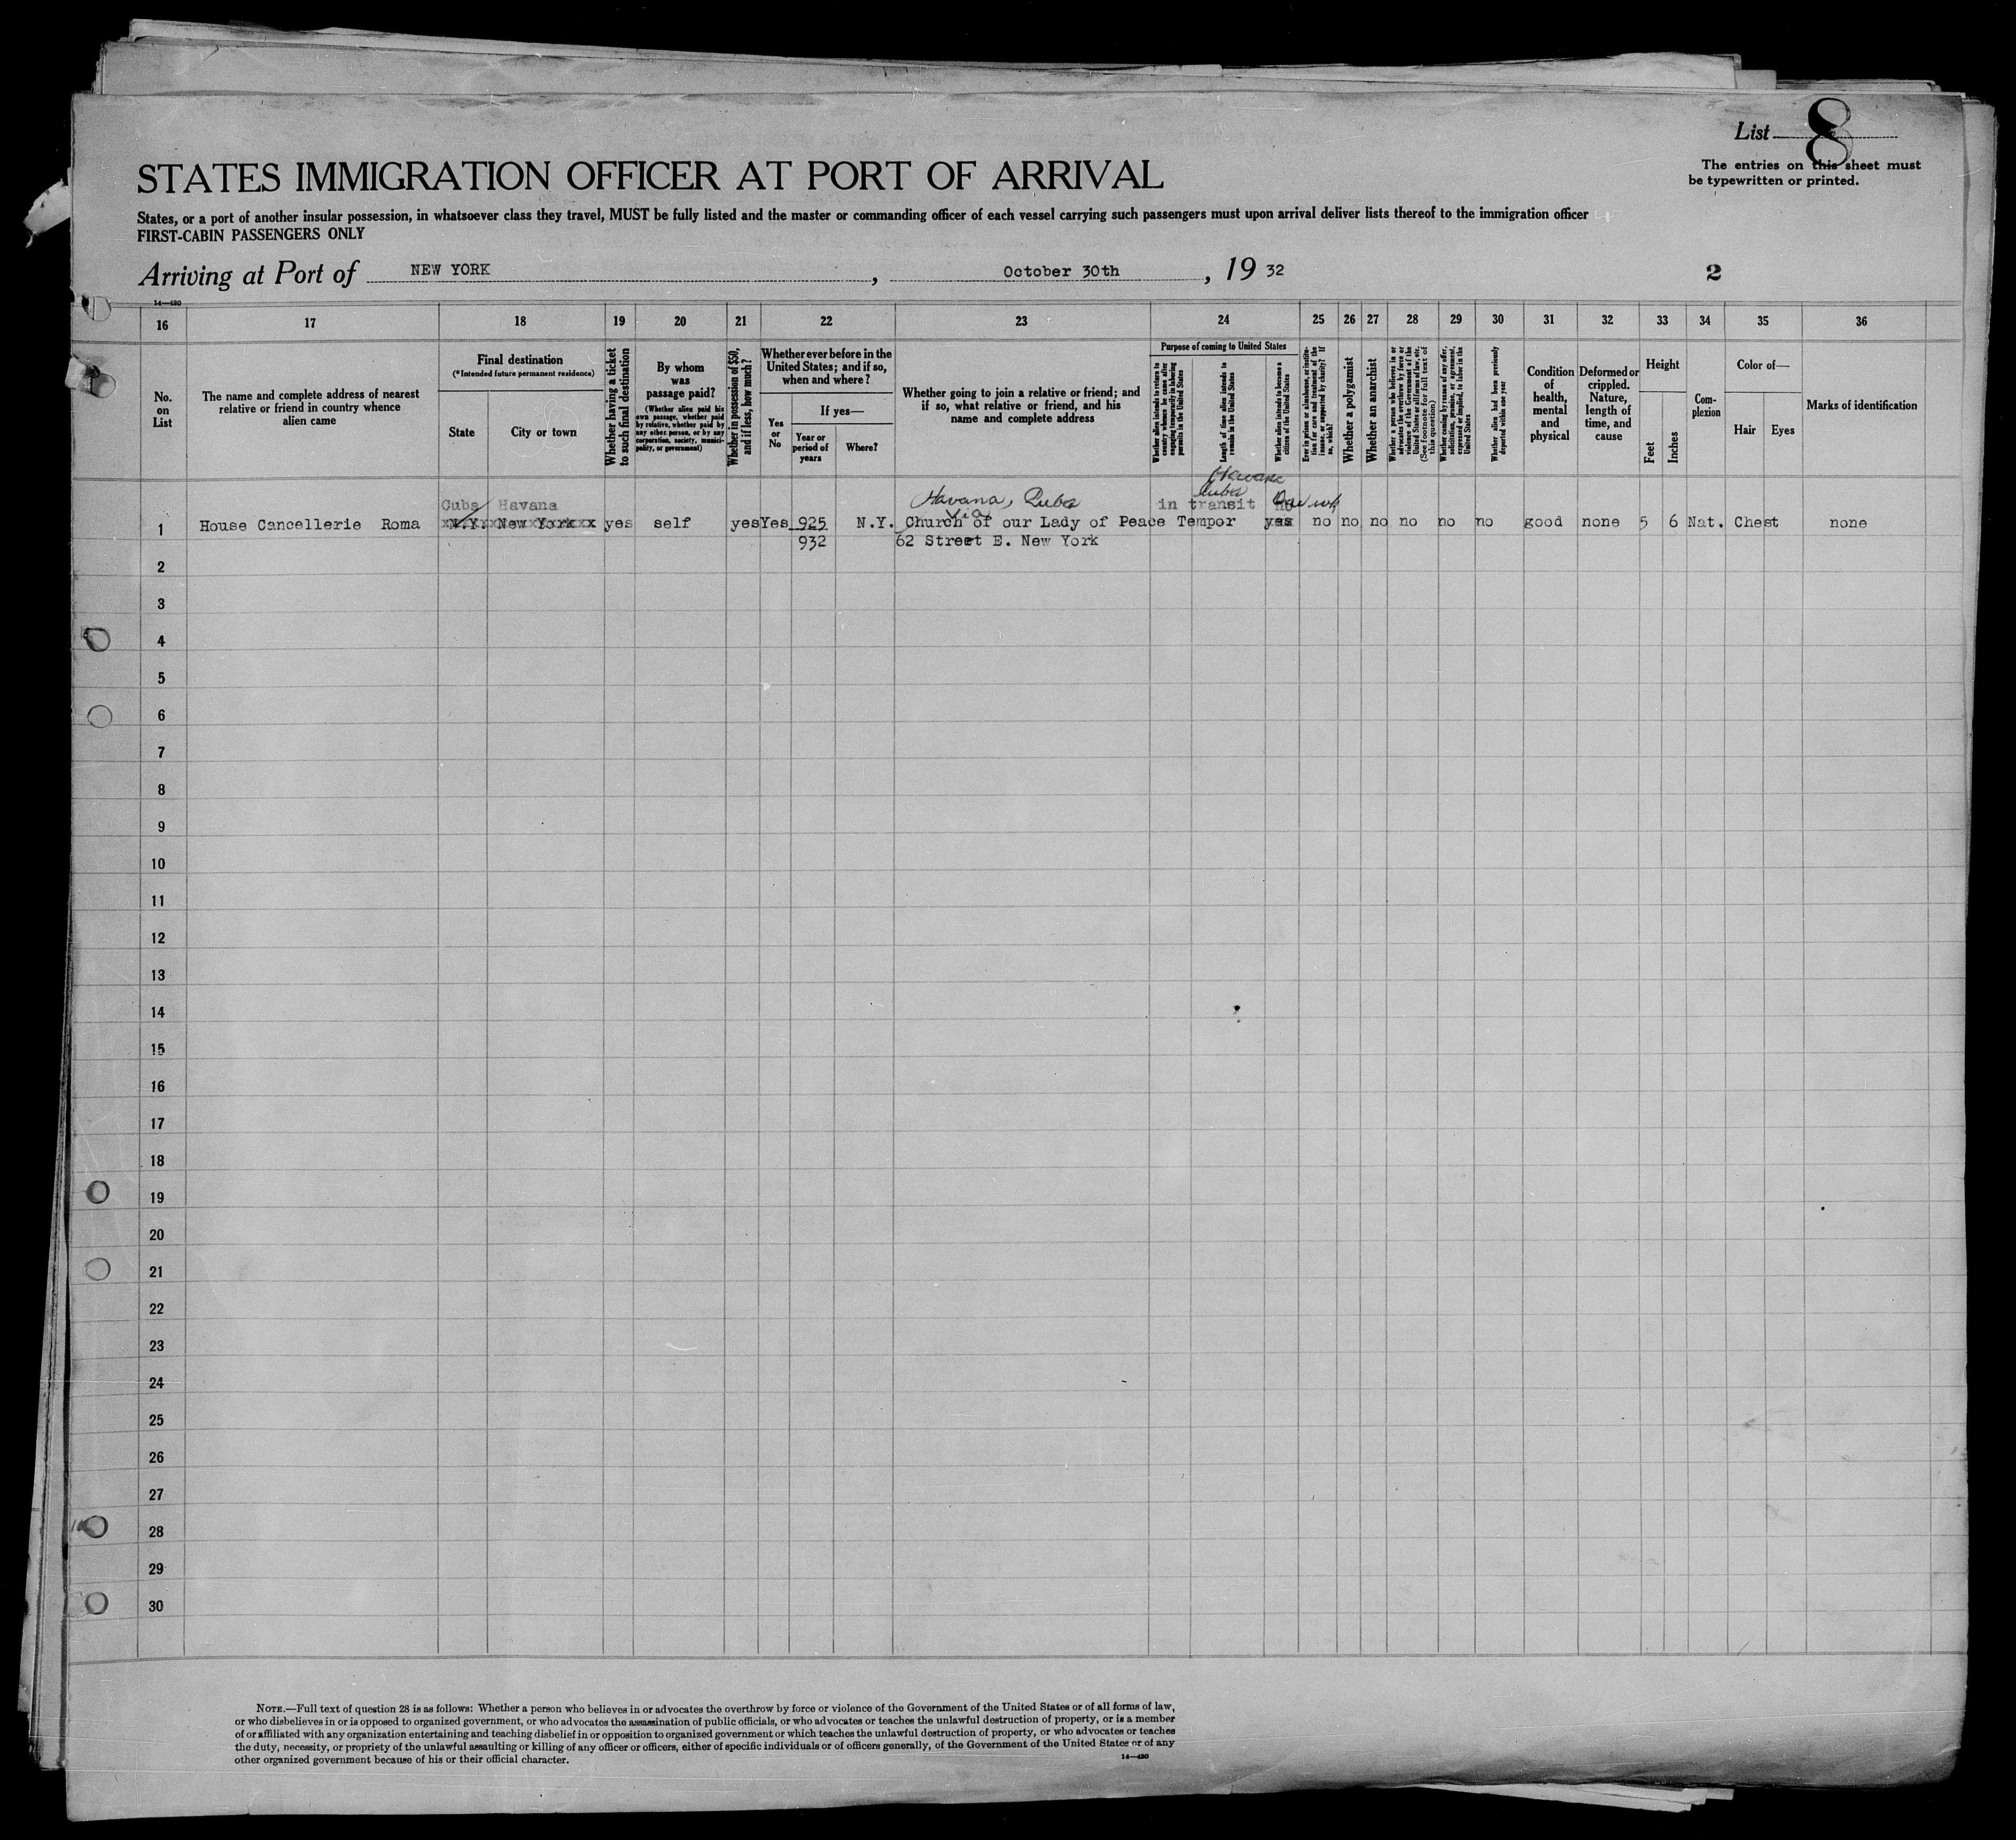 List 8
The entries on this sheet must
be typewritten or printed.
STATES IMMIGRATION OFFICER AT PORT OF ARRIVAL
States, or a port of another insular possession, in whatsoever class they travel, MUST be fully listed and the master or commanding officer of each vessel carrying such passengers must upon arrival deliver lists thereof to the immigration officer
FIRST-CABIN PASSENGERS ONLY
Arriving at Port of NEW YORK, October 30th, 1932
2
14—430
16 17 18 19 20 21 22 23 24 25 26 27 28 29 30 31 32 33 34 35 36
No. on List
The name and complete address of nearest relative or friend in country whence alien came
Final destination
(*Intended future permanent residence)
State
City or town
Whether having a ticket to such final destination
By whom was passage paid?
(Whether alien paid his own passage, whether paid by relative, whether paid by any other person, or by any corporation, society, municipality, or government)
Whether in possession of $50, and if less, how much?
Whether ever before in the United States; and if so, when and where?
Yes or No
If yes—
Year or period of years
Where?
Whether going to join a relative or friend; and if so, what relative or friend, and his name and complete address
Purpose of coming to United States
Whether alien intends to return to country whence he came after engaging temporarily in laboring pursuits in the United States
Length of time alien intends to remain in the United States
Whether alien intends to become a citizen of the United States
Ever in prison or almshouse, or institution for care and treatment of the insane, or supported by charity? If so, which?
Whether a polygamist
Whether an anarchist
Whether a person who believes in or advocates the overthrow by force or violence of the Government of the United States or all forms of law, etc. (See footnote for full text of this question)
Whether coming by reason of any offer, solicitation, promise, or agreement, expressed or implied, to labor in the United States
Whether alien had been previously deported within one year
Condition of health, mental and physical
Deformed or crippled. Nature, length of time, and cause
Height
Feet
Inches
Complexion
Color of—
Hair
Eyes
Marks of identification
Havana
Cuba Havana Havana, Cuba Cuba in transit no
1 House Cancellerie Roma N.Y. New York yes self yes Yes 925 N.Y. via Church of our Lady of Peace Tempor yes no no no no no no good none 5 6 Nat. Chest none
932 62 Street E. New York
2
3
4
5
6
7
8
9
10
11
12
13
14
15
16
17
18
19
20
21
22
23
24
25
26
27
28
29
30
NOTE.—Full text of question 28 is as follows: Whether a person who believes in or advocates the overthrow by force or violence of the Government of the United States or of all forms of law,
or who disbelieves in or is opposed to organized government, or who advocates the assassination of public officials, or who advocates or teaches the unlawful destruction of property, or is a member
of or affiliated with any organization entertaining and teaching disbelief in or opposition to organized government or which teaches the unlawful destruction of property, or who advocates or teaches
the duty, necessity, or propriety of the unlawful assaulting or killing of any officer or officers, either of specific individuals or of officers generally, of the Government of the United States or of any
other organized government because of his or their official character.
14—430